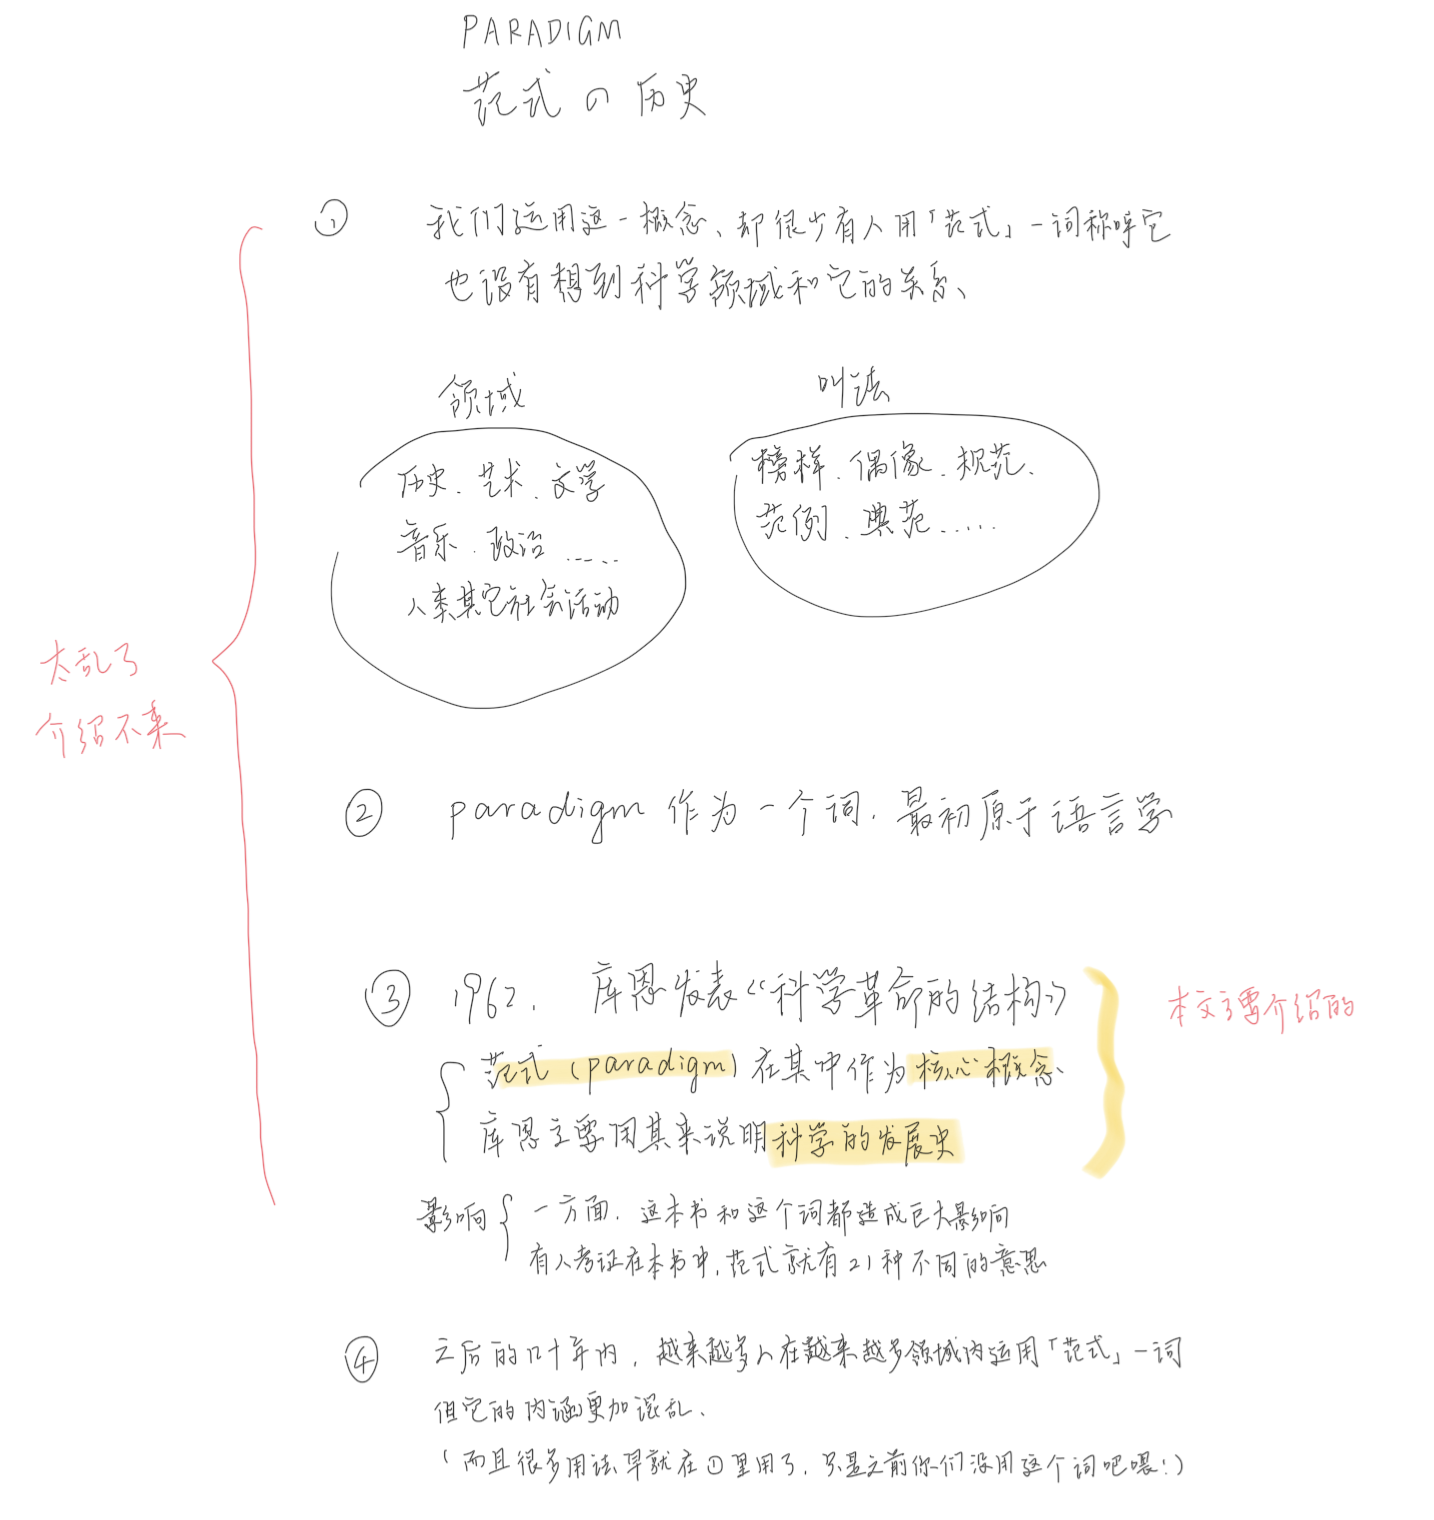 PARADIGM
范式の历史
① 我们运用这一概念、却很少有人用「范式」一词称呼它
也没有想到科学领域和它的关系、
领域
历史、艺术、文学
音乐、政治……
人类其它社会活动
叫法
榜样、偶像、规范、
范例、典范……
太乱了
介绍不来
② paradigm 作为一个词，最初原于语言学
③ 1962，库恩发表《科学革命的结构》
范式（paradigm）在其中作为核心概念、
库恩主要用其来说明科学的发展史
本文主要介绍的
影响 一方面，这本书和这个词都造成巨大影响
有人考证在本书中，范式就有21种不同的意思
④ 之后的几十年内，越来越多人在越来越多领域内运用「范式」一词
但它的内涵更加混乱、
（而且很多用法早就在①里用了，只是之前你们没用这个词吧喂！）